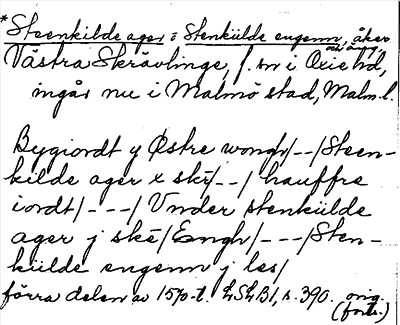 *Steenkilde ager : Stenkiilde engenn, åker
och äng,
Västra Skrävlinge, f. sn i Oxie hd,
ingår nu i Malmö stad, Malm. l.
Bygiordt y Østre wongh/--/Steen-
kilde ager x skē/--/ hauffre
iordt/---/Vnder stenkiilde
ager j skē/Eengh/---/Sten-
kiilde engenn j les/
förra delen av 1570-t. LSLB1, s. 390. orig.
(forts.)